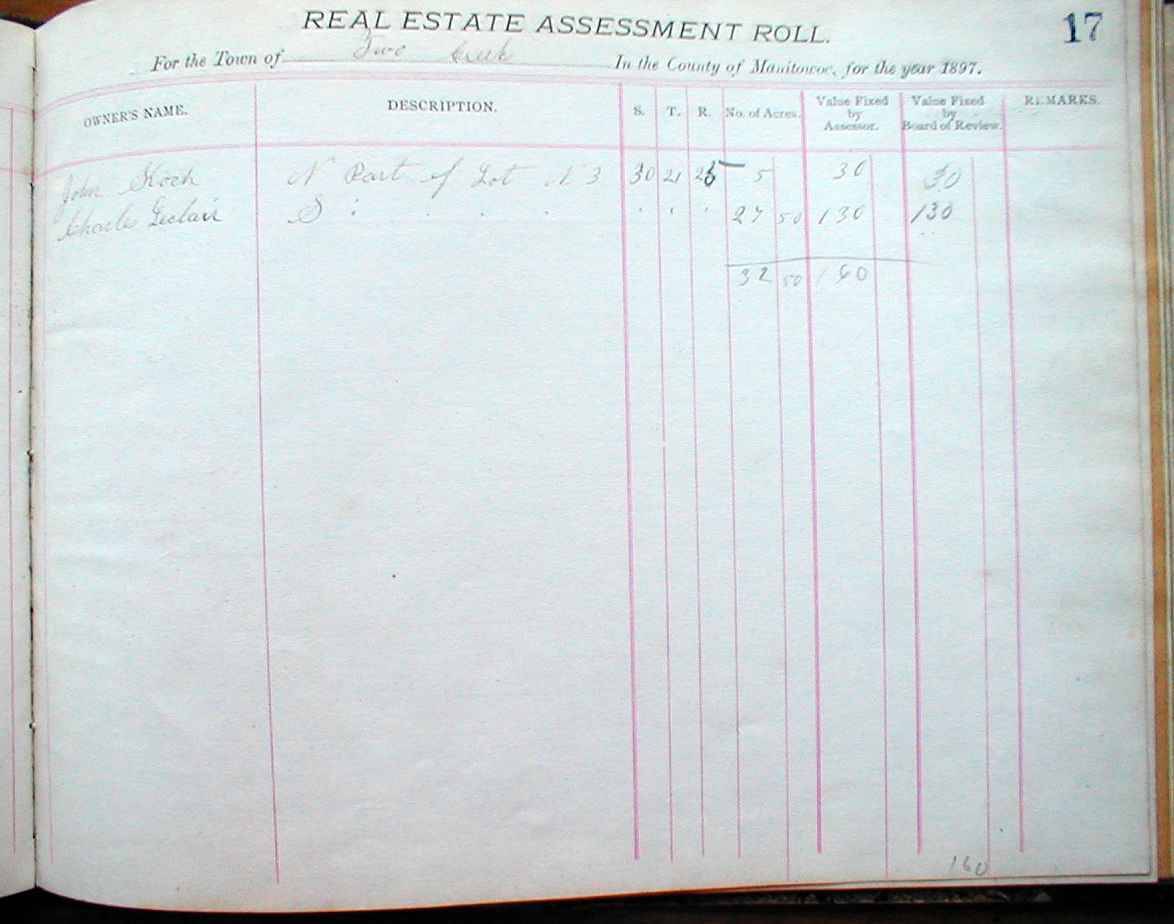 REAL ESTATE ASSESSMENT ROLL. 17
For the Town of Two Creek In the County of Manitowoc, for the year 1897.
OWNER'S NAME. DESCRIPTION. S. T. R. No. of Acres. Value Fixed by Assessor. Value Fixed by Board of Review. REMARKS.
John N Part of Lot N 3 30 21 25 5 30 30
Charle S : . . . . . . 27 50 130 130
32 50 160
160